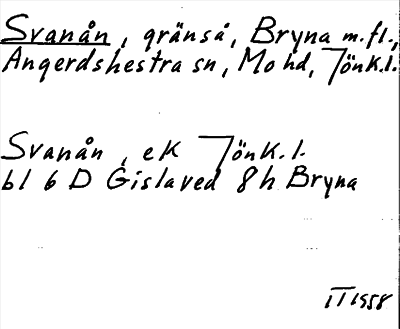 Svanån, gränså, Bryna m.fl.,
Angerdshestra sn, Mo hd, Jönk.l.
Svanån, ek Jönk.l.
bl 6 D Gislaved 8h Bryna
IT 1958